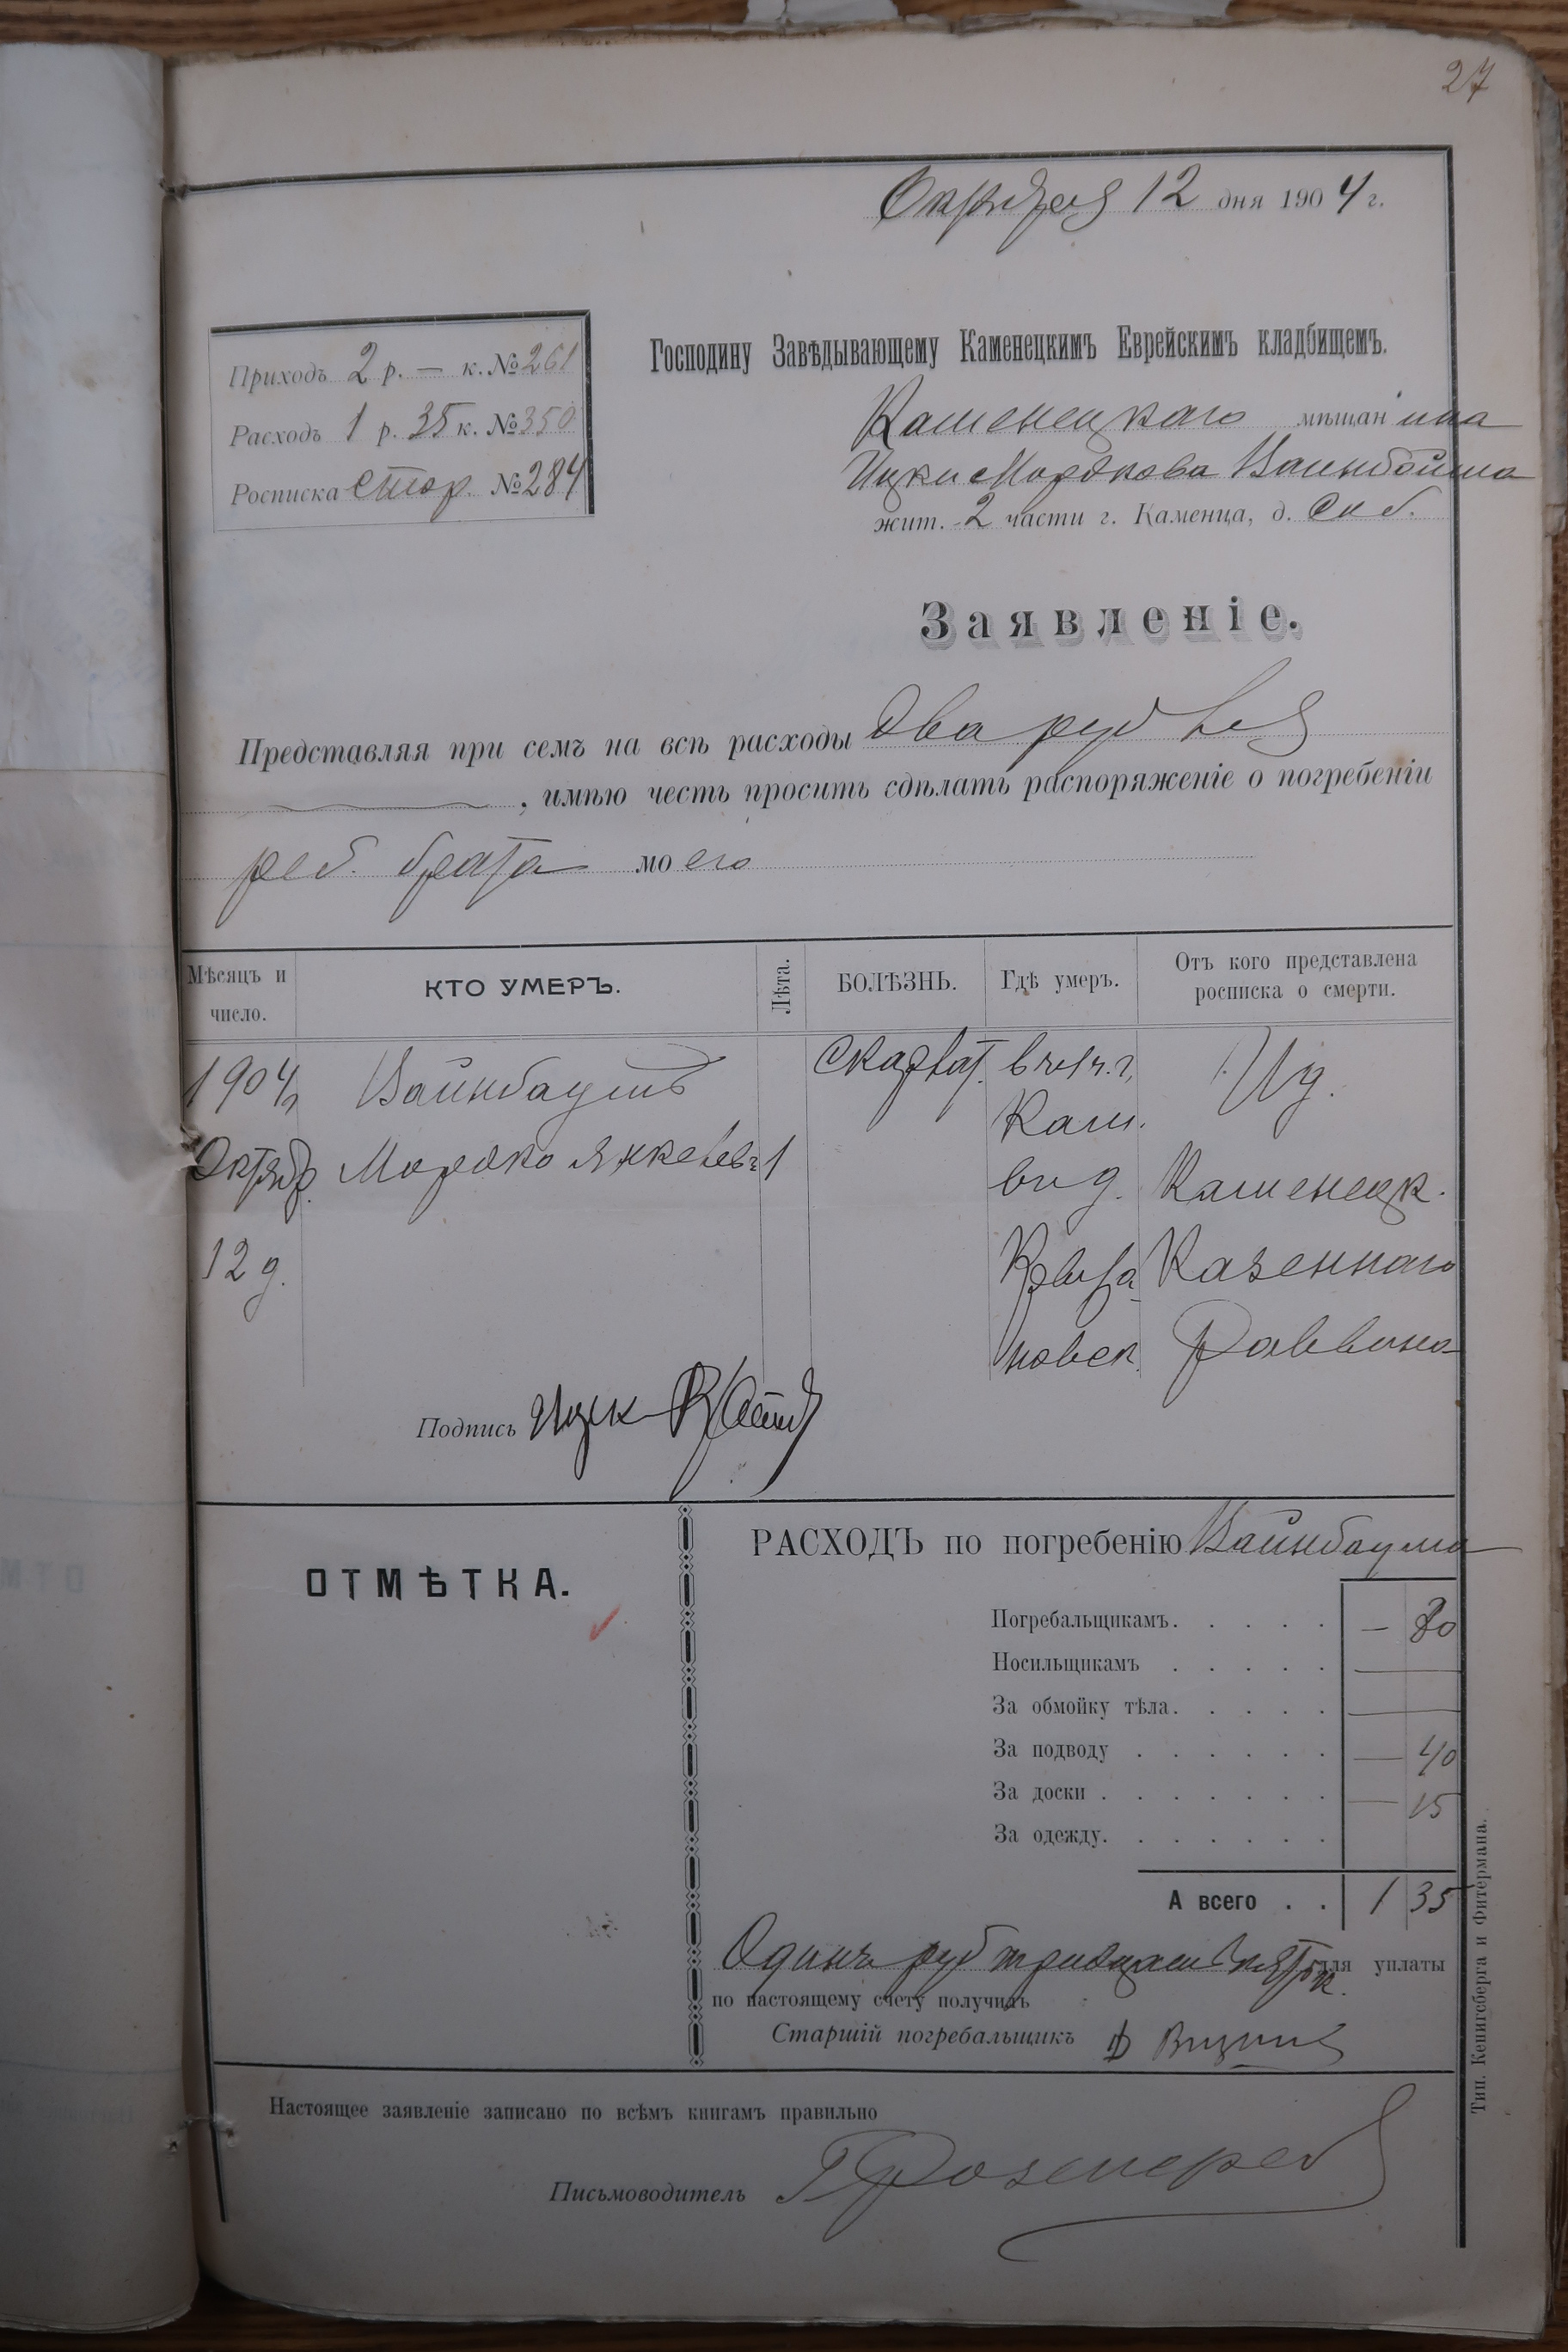 27
Октября 12 дня 1904 г.
Приходъ 2 р. — к. № 261
Расходъ 1 р. 35 к. № 350
Росписка стор. № 284
Господину Завѣдывающему Каменецкимъ Еврейскимъ кладбищемъ.
Каменецкаго мѣщанина
Ицки Мордкова Вайнбойма
жит. 2 части г. Каменца, д. Соб.
Заявленіе.
Представляя при семъ на всѣ расходы Два рубля
, имѣю честь просить сдѣлать распоряженіе о погребеніи
реб. брата моего
Мѣсяцъ и число. КТО УМЕРЪ. Лѣта. БОЛѢЗНЬ. Гдѣ умеръ. Отъ кого представлена росписка о смерти.
1904 Вайнбаумъ Скарлат. в г.
Кам.
Октябр. Мордко Янкелев 1 Каменецк.
12 д. Казеннаго
новск. Раввина
Подпись Ицк
ОТМѢТКА.
РАСХОДЪ по погребенію Вайнбаума
Погребальщикамъ. — 80
Носильщикамъ —
За обмойку тѣла. —
За подводу — 40
За доски — 15
За одежду.
А всего 1 35
Одинъ руб тридцать пять к. для уплаты
по настоящему счету получилъ
Старшій погребальщикъ
Настоящее заявленіе записано по всѣмъ книгамъ правильно
Письмоводитель
Тип. Кенигсберга и Фитермана.